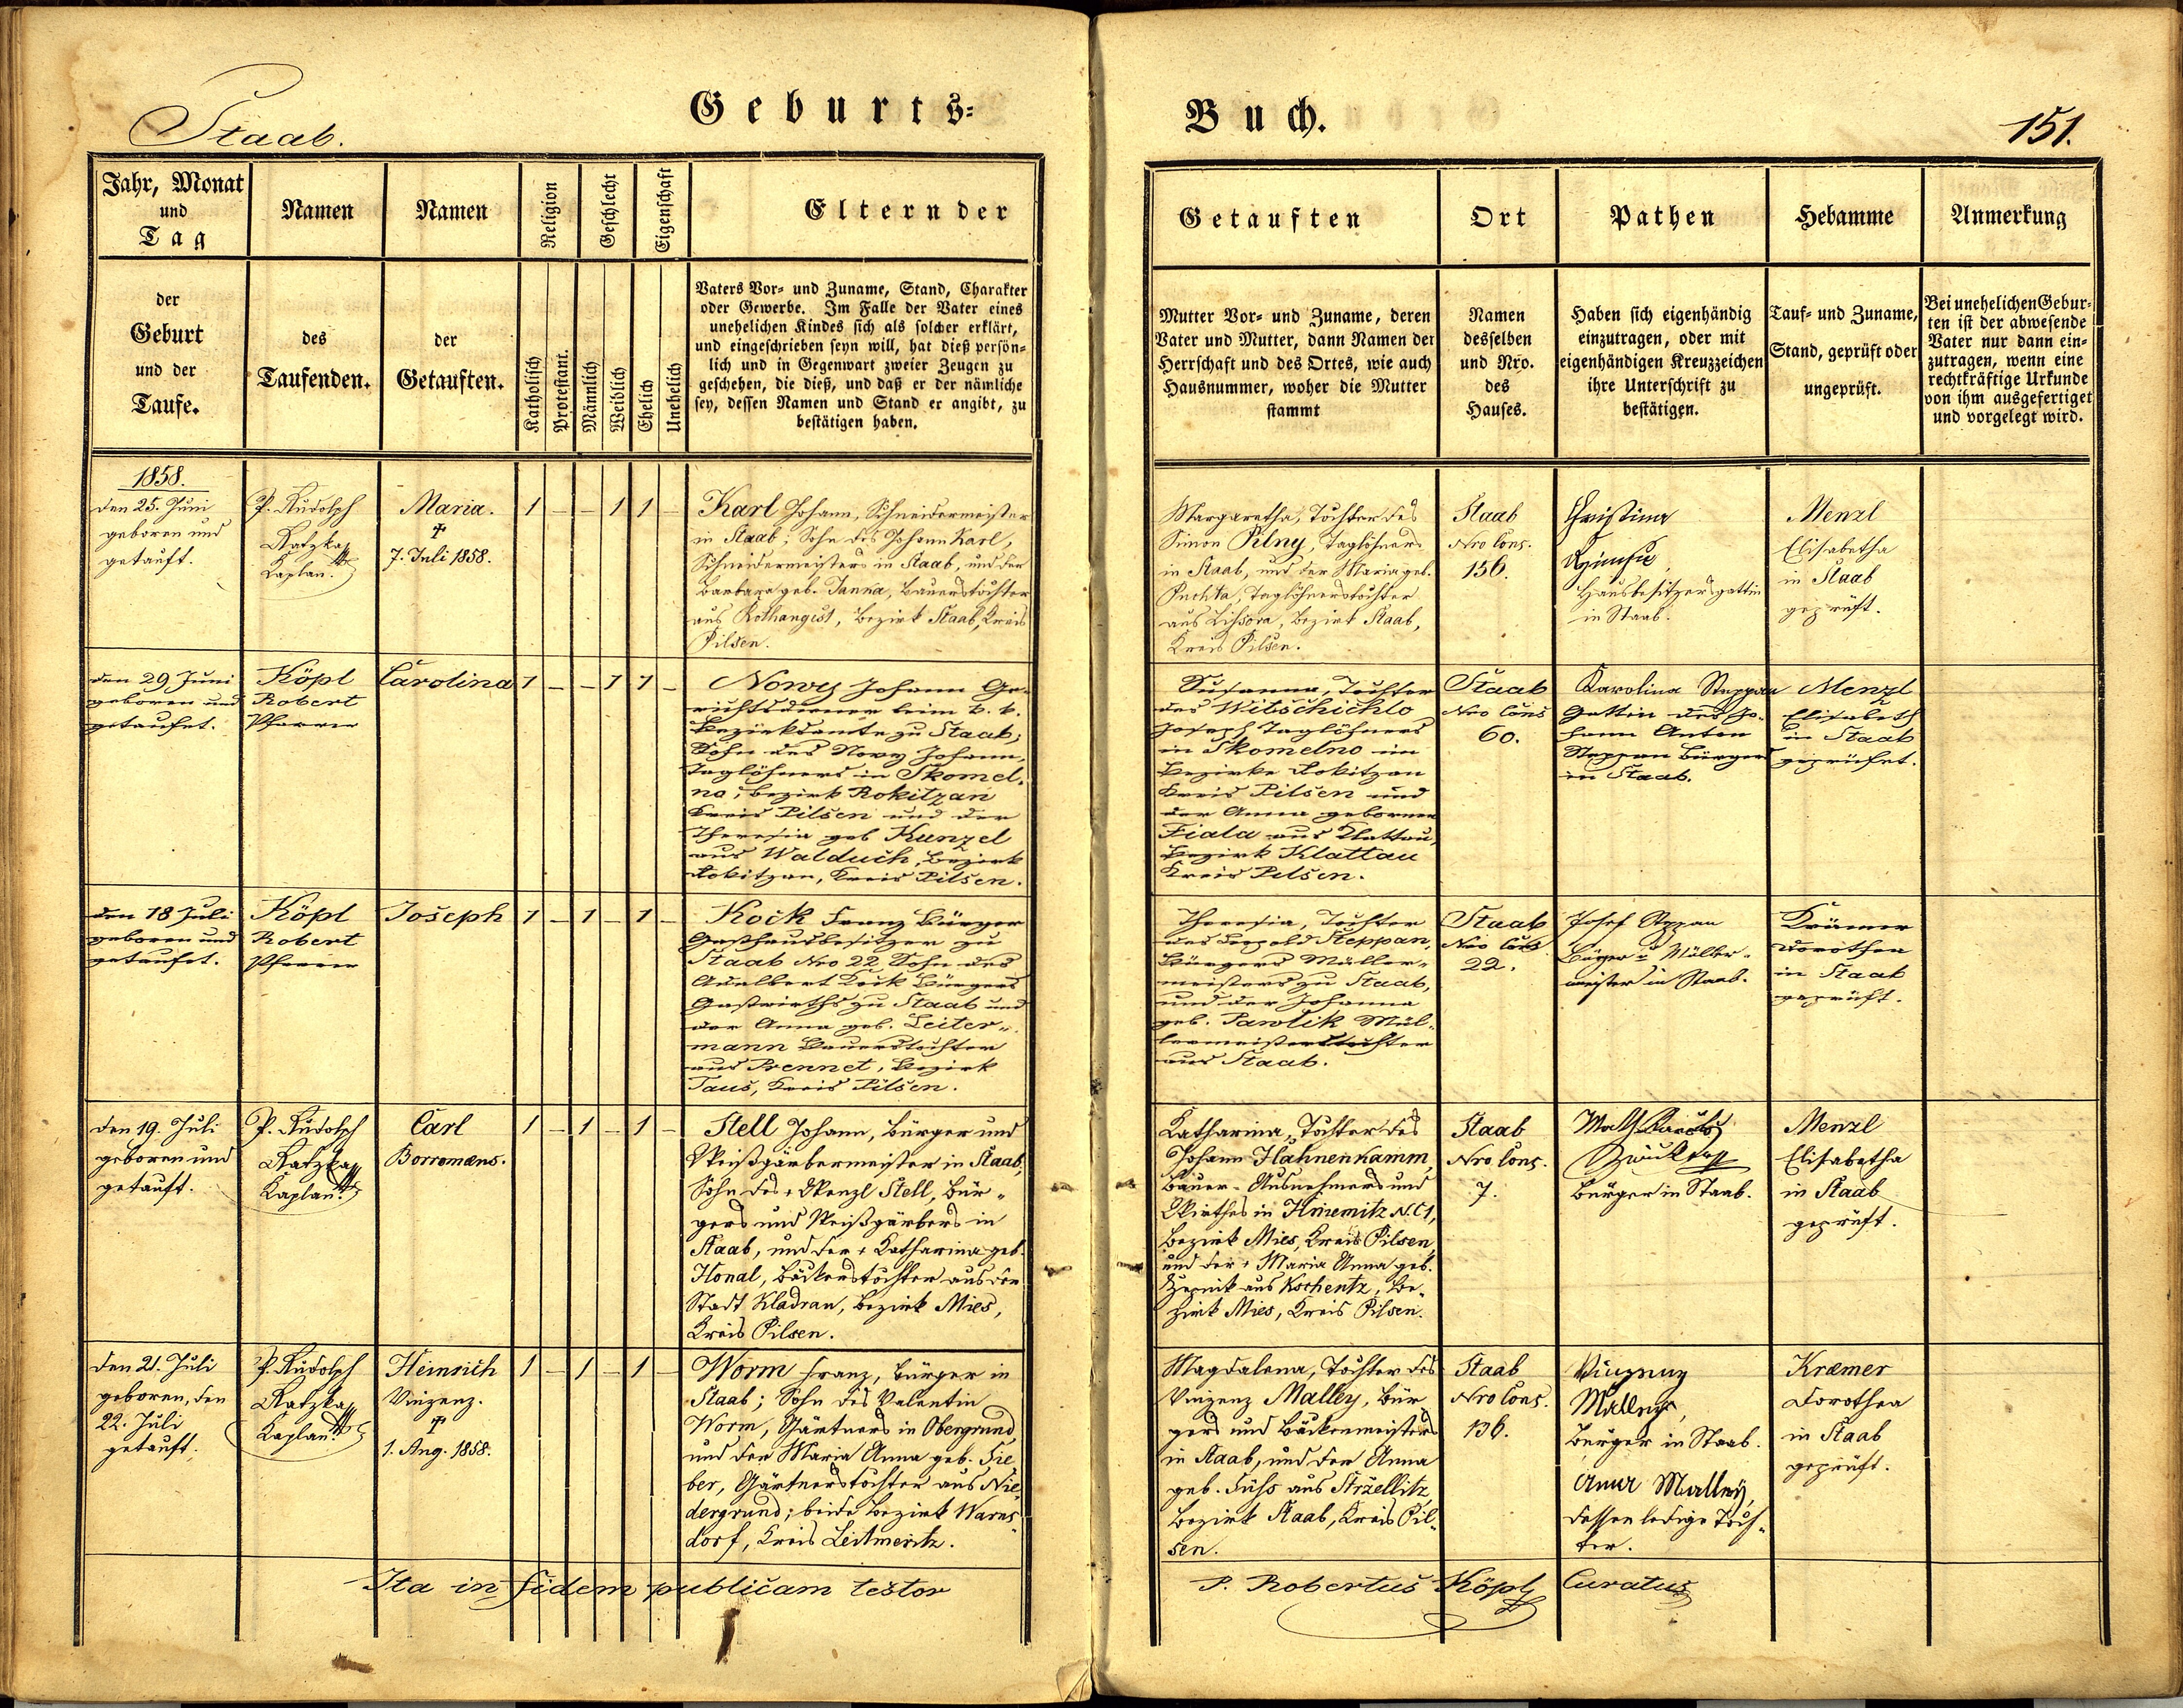 Staab.
Geburts=
Buch.
151.
Jahr, Monat
und
Tag
Namen
Namen
Religion
Geschlecht
Eigenschaft
Eltern der
Getauften
Ort
Pathen
Hebamme
Anmerkung
der
Geburt
und der
Taufe.
des
Taufenden.
der
Getauften.
Katholisch
Protestant.
Männlich
Weiblich
Ehelich
Unehelich
Vaters Vor= und Zuname, Stand, Charakter
oder Gewerbe. Im Falle der Vater eines
unehelichen Kindes sich als solcher erklärt,
und eingeschrieben seyn will, hat dieß persön=
lich und in Gegenwart zweier Zeugen zu
geschehen, die dieß, und daß er der nämliche
sey, dessen Namen und Stand er angibt, zu
bestätigen haben.
Mutter Vor= und Zuname, deren
Vater und Mutter, dann Namen der
Herrschaft und des Ortes, wie auch
Hausnummer, woher die Mutter
stammt
Namen
desselben
und Nro.
des
Hauses.
Haben sich eigenhändig
einzutragen, oder mit
eigenhändigen Kreuzzeichen
ihre Unterschrift zu
bestätigen.
Tauf= und Zuname,
Stand, geprüft oder
ungeprüft.
Bei unehelichen Gebur=
ten ist der abwesende
Vater nur dann ein=
zutragen, wenn eine
rechtkräftige Urkunde
von ihm ausgefertiget
und vorgelegt wird.
1858.
den 25. Juni
geboren und
getauft.
P. Rudolph
Ratzka
Kaplan.
Maria.
†
7. Juli 1858.
1 – – 1 1 –
Karl Johann, Schneidermeister
in Staab; Sohn des Johann Karl,
Schneidermeisters in Staab, und der
Barbara geb. Janka, Bauerstochter
aus Rothaugest, Bezirk Staab, Kreis
Pilsen.
Margaretha, Tochter des
Simon Pilny, Taglöhners
in Staab, und der Maria geb.
Puchta, Taglöhnerstochter
aus Lissova, Bezirk Staab,
Kreis Pilsen.
Staab
Nro Cons.
136.
Christina
Hausbesitzersgattin
in Staab.
Menzl
Elisabetha
in Staab
geprüft.
den 29 Juni
geboren und
getaufet.
Köpl
Robert
Pfarrer
Carolina
1 – – 1 1 –
Nowy Johann Ge-
richtsdiener beim k. k.
Bezirksamte zu Staab;
Sohn des Nowy Johann,
Taglöhners in Skomel-
no, Bezirk Rokitzan
Kreis Pilsen und der
Theresia geb Kunzel
aus Walduch, Bezirk
Rokitzan, Kreis Pilsen.
Susanna, Tochter
des Witschichlo
Joseph Taglöhners
in Skomelno im
Bezirke Rokitzan
Kreis Pilsen und
der Anna geborner
Fiala aus Klattau,
Bezirk Klattau
Kreis Pilsen.
Staab
Nro Cons
60.
Karolina Steppan
Gattin des Jo-
hann Anton
Steppan Bürgers
in Staab.
Menzl
Elisabeth
in Staab
geprüfet.
den 18 Juli
geboren und
getaufet.
Köpl
Robert
Pfarrer
Joseph
1 – 1 – 1 –
Kock Franz Bürger
Gasthausbesitzer zu
Staab Nro 22 Sohn des
Adalbert Kock Bürgers
Gastwirths zu Staab und
der Anna geb. Leiter-
mann Bauerstochter
aus Prennet, Bezirk
Taus, Kreis Pilsen.
Theresia, Tochter
des Leopold Steppan,
Bürgers Müller-
meisters zu Staab,
und der Johanna
geb. Pawlik Mül-
lermeisterstochter
aus Staab.
Staab
Nro Cons
22.
Josef Steppan
Bürger u Müller-
meister in Staab.
Krämer
Dorothea
in Staab
geprüft.
den 19. Juli
geboren und
getauft.
P. Rudolph
Ratzka
Kaplan.
Carl
Borromæus.
1 – 1 – 1 –
Stell Johann, Bürger und
Weißgärbermeister in Staab,
Sohn des † Wenzl Stell, Bür-
gers und Weißgärbers in
Staab, und der † Katharina geb.
Honal, Bäckerstochter aus der
Stadt Kladrau, Bezirk Mies,
Kreis Pilsen.
Katharina, Tochter des
Johann Hahnenkamm,
Bauer-Ausnehmers und
Wirthes in Hniemitz N.C 1,
Bezirk Mies, Kreis Pilsen,
und der † Maria Anna geb.
aus Kschentz, Be-
zirk Mies, Kreis Pilsen.
Staab
Nro Cons.
7.
Bürger in Staab.
Menzl
Elisabetha
in Staab
geprüft.
den 21. Juli
geboren, den
22. Juli
getauft.
P. Rudolph
Ratzka
Kaplan.
Heinrich
Vinzenz.
†
1. Aug. 1858.
1 – 1 – 1 –
Worm Franz, Bürger in
Staab; Sohn des Valentin
Worm, Gärtners in Obergrund,
und der Maria Anna geb. Fie-
ber, Gärtnerstochter aus Nie-
dergrund; beide Bezirk Warns-
dorf, Kreis Leitmeritz.
Magdalena, Tochter des
Vinzenz Malley, Bür-
gers und Bäckermeisters
in Staab, und der Anna
geb. Fuhs aus Strzellitz,
Bezirk Staab, Kreis Pil-
sen.
Staab
Nro Cons.
136.
Vinzenz
Malley,
Bürger in Staab.
Anna Malley,
dessen ledige Toch-
ter.
Kræmer
Dorothea
in Staab
geprüft.
Ita in fidem publicam testor
P. Robertus Köpl Curatus